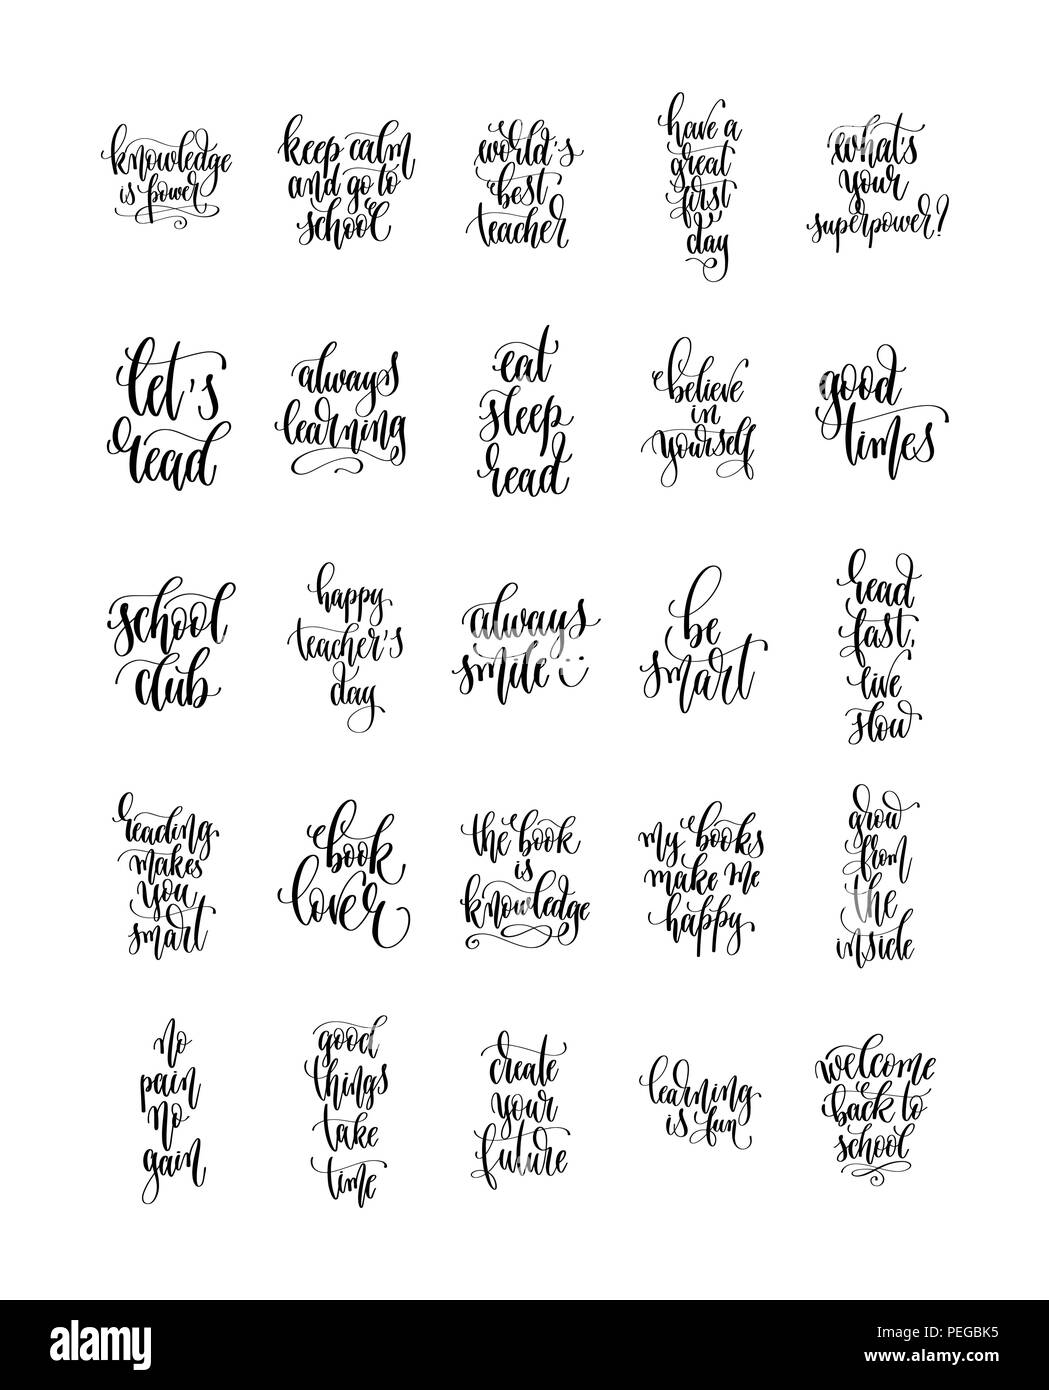 knowledge
is power
keep calm
and go to
school
world's
best
teacher
have a
great
first
day
what's
your
superpower?
let's
read
always
learning
eat
sleep
read
believe
in
yourself
good
times
school
club
happy
teacher's
day
always
smile
be
smart
read
fast,
live
slow
reading
makes
you
smart
book
lover
the book
is
knowledge
my books
make me
happy
grow
from
the
inside
no
pain
no
gain
good
things
take
time
create
your
future
learning
is fun
welcome
back to
school
alamy
Image ID: PEGBK5
www.alamy.com